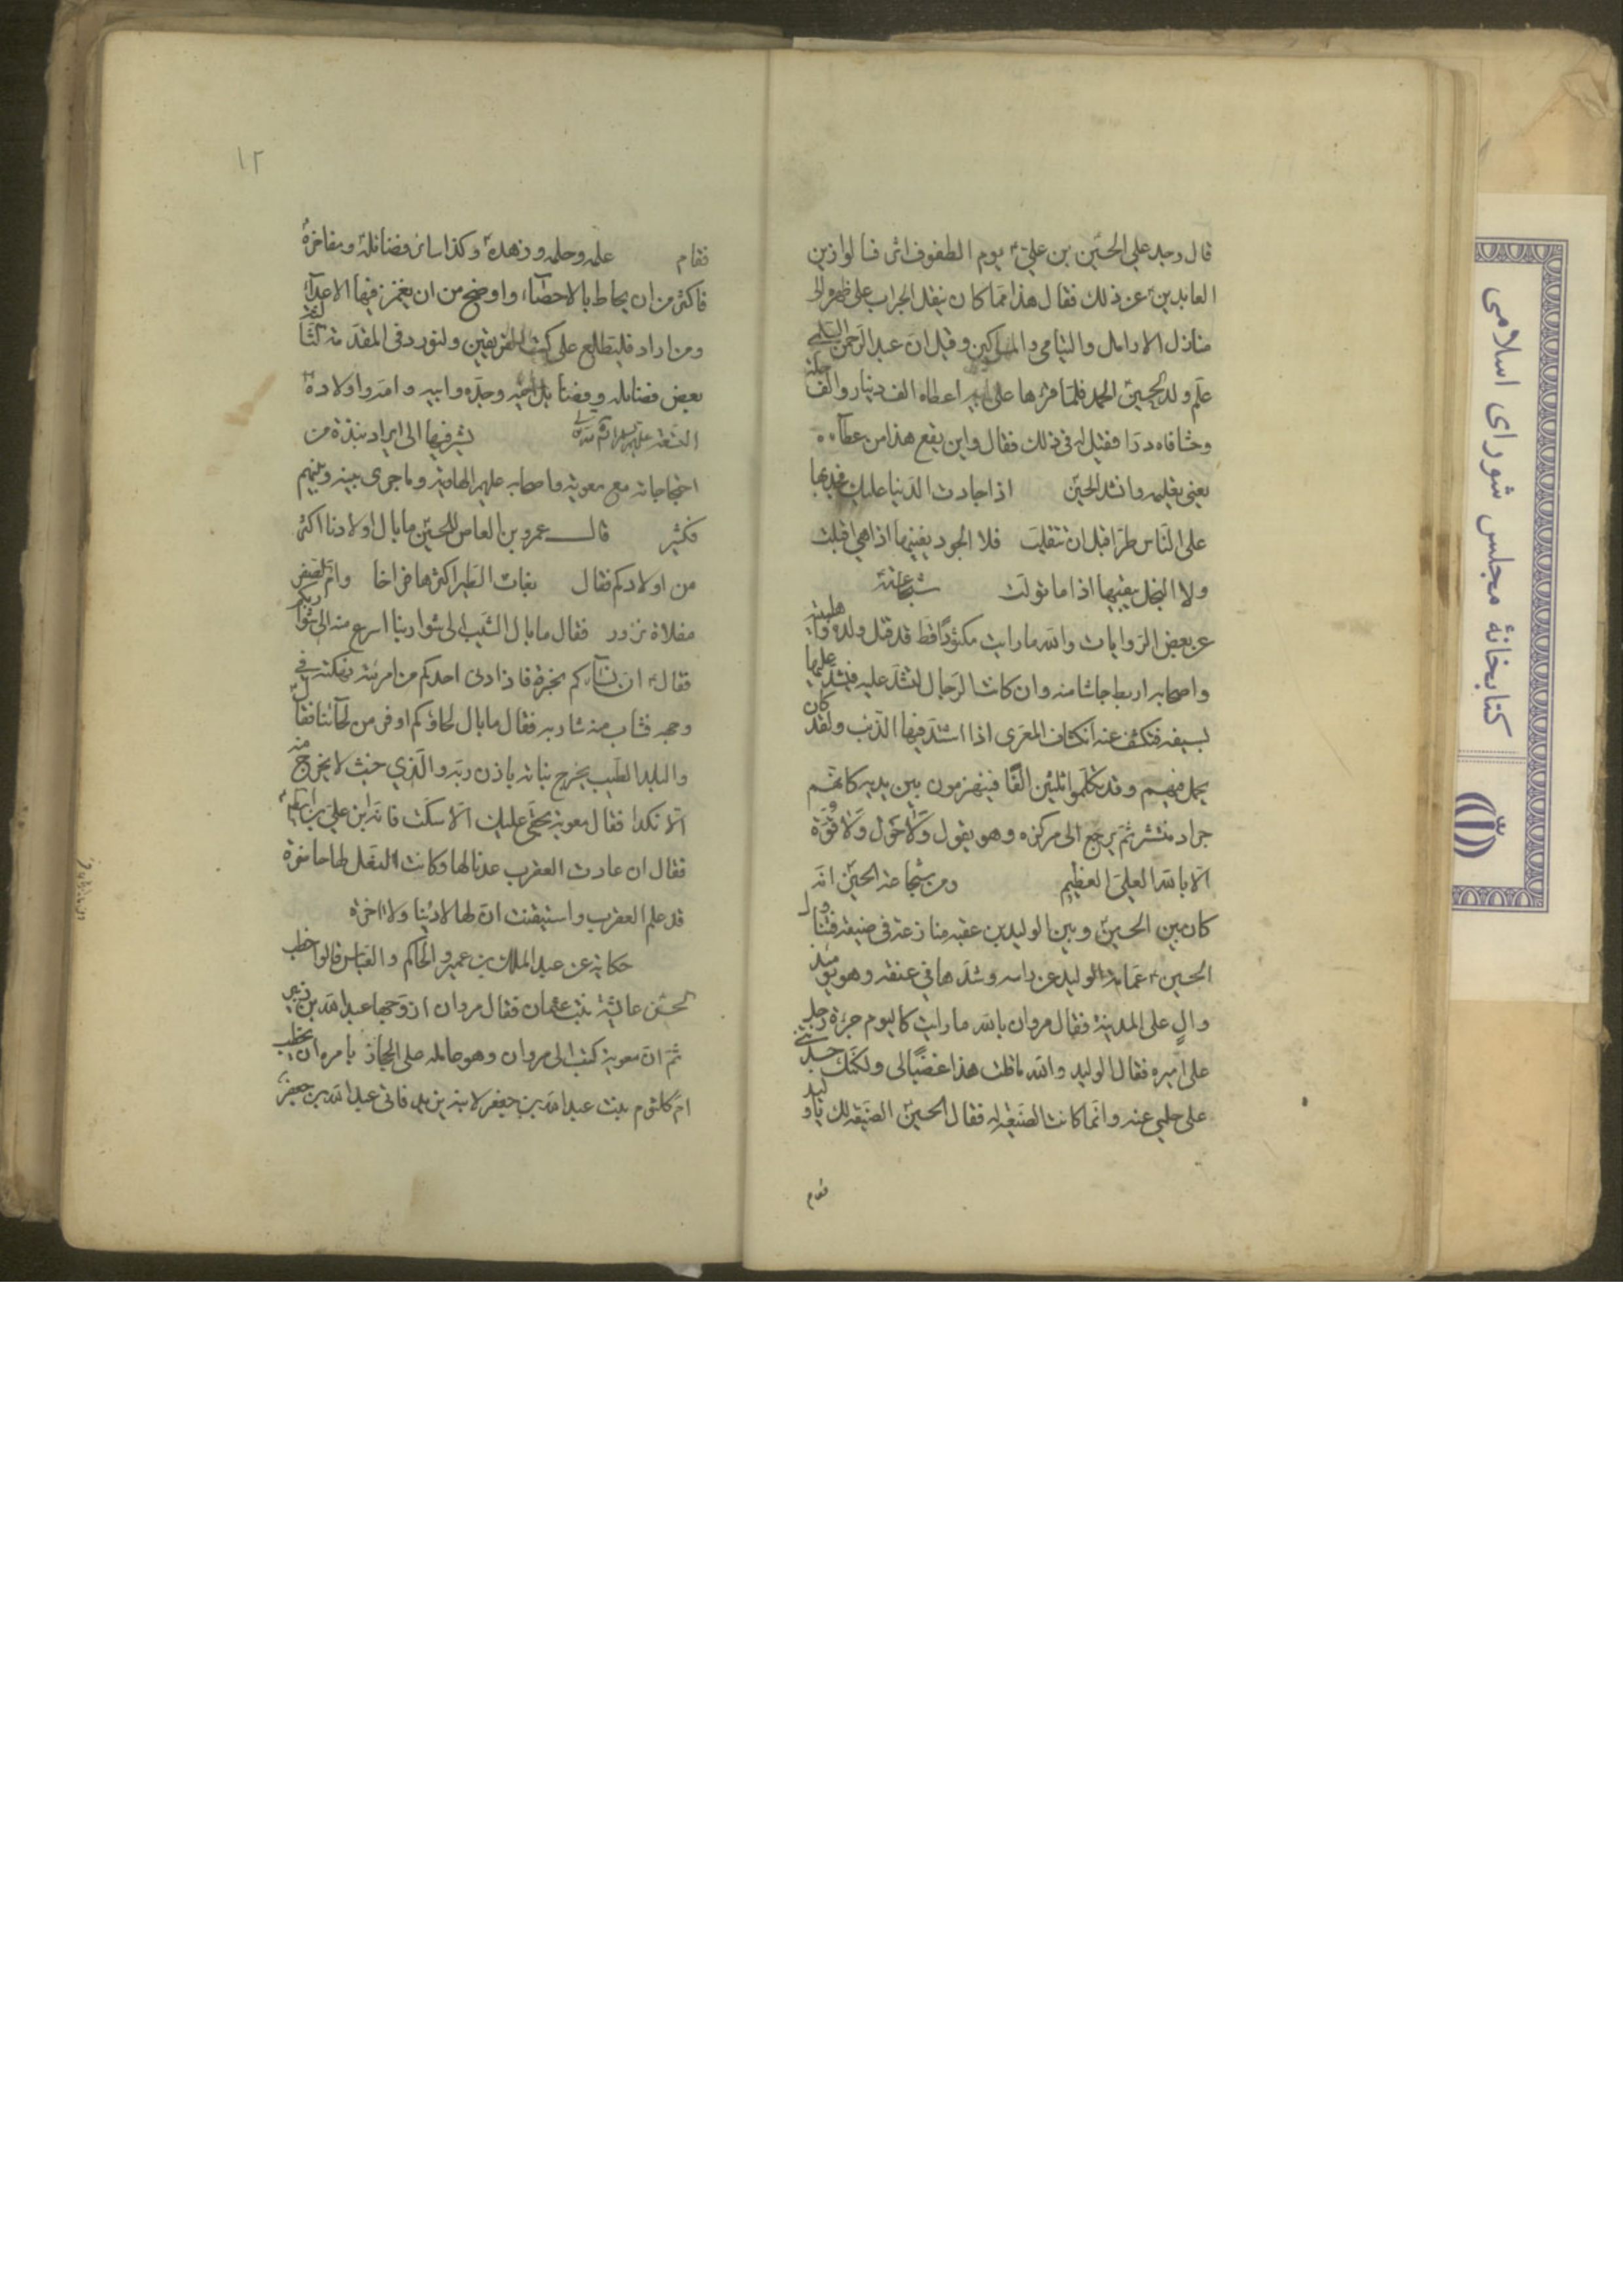 قال وجد علی الحسین بن علیؑ یوم الطفوف اثر فسالوا زین
العابدینؑ عن ذلك فقال هذا مما كان ینقل الجراب علی ظهره الی
منازل الارامل والیتامی والمساكین وقیل ان عبد الرحمن السلمی
علم ولد الحسین الحمد فلما قرأها علی ابیه اعطاه الف دینار والف حلة
وحشا فاه درا فقیل له فی ذلك فقال واین یقع هذا من عطآءه
یعنی تعلیمه وانشد الحسین اذا جادت الدنیا علیك فجد بها
علی الناس طرا قبل ان تتفلت فلا الجود یفنیها اذا هی اقبلت
ولا البخل یبقیها اذا ما تولت شجاعته
عن بعض الروایات والله ما رایت مكثورًا قط قد قتل ولده واهلبیته
واصحابه اربط جاشا منه وان كانت الرجال لتشد علیه فیشد علیها
بسیفه فتنكشف عنه انكشاف المعزی اذا اشتد فیها الذئب ولقد كان
یحمل فیهم وقد تكلموا ثلثین الفًا فینهزمون بین یدیه كانهم
جراد منتشر ثم یرجع الی مركزه وهو یقول ولا حول ولا قوة
الا بالله العلی العظیم ومن شجاعة الحسین انه
كان بین الحسین وبین الولید بن عقبه منازعة فی ضیعة فتناول
الحسینؑ عمامة الولید عن راسه وشدها فی عنقه وهو یومئذ
والٍ علی المدینة فقال مروان بالله ما رایت كالیوم جرءة رجل
علی امیره فقال الولید والله ما قلت هذا غضبًا لی ولكنك حسدتنی
علی حلمی عنه وانما كانت الضیعة له فقال الحسین الضیعة لك یا ولید
فقام
۱۲
فقام علمه وحلمه وزهده وكذا سائر فضائله ومفاخره
فاكثر من ان یحاط بالاحصآء واوضح من ان یغمز فیها الاعدآء
ومن اراد فلیتطلع علی كتب الفریقین ولنورد فی المقدمة
بعض فضائله وفضایل اخیه وجده وابیه وامه واولاده
التسعة علیهم السلام یشیر فیها الی ایراد نبذة من
احتجاجاته مع معویة واصحابه علیهم الهاویة وما جری بینه وبینهم
فكثیر قال عمرو بن العاص للحسین ما بال اولادنا اكثر
من اولادكم فقال بغاث الطیر اكثرها فراخا وام الصقر
مقلاة نزور فقال ما بال الشیب الی شواربنا اسرع منه الی شواربكم
فقالؑ ان نسآءكم بخرة فاذا دنی احدكم من امرئته نهكته فی
وجهه فشاب منه شاربه فقال ما بال لحاؤكم اوفر من لحآئنا فقال
والبلد الطیب یخرج نباته باذن ربه والذی خبث لا یخرج منه
الا نكدا فقال معویة بحقی علیك الا سكت فانه ابن علی بن ابیطالبؑ
فقال ان عادت العقرب عدنا لها وكانت النعل لها حاضرة
قد علم العقرب واستیقنت ان لها لا دنیا ولا اخرة
حكایة عن عبد الملك بن عمیر والحاكم والعباس قالوا خطب
الحسن عائشة بنت عثمان فقال مروان ازوجها عبد الله بن زبیر
ثم ان معویة كتب الی مروان وهو عامله علی الحجاز یامره ان یخطب
ام كلثوم بنت عبد الله بن جعفر لابنه یزید فاتی عبد الله بن جعفر
كتابخانهٔ مجلس شورای اسلامی